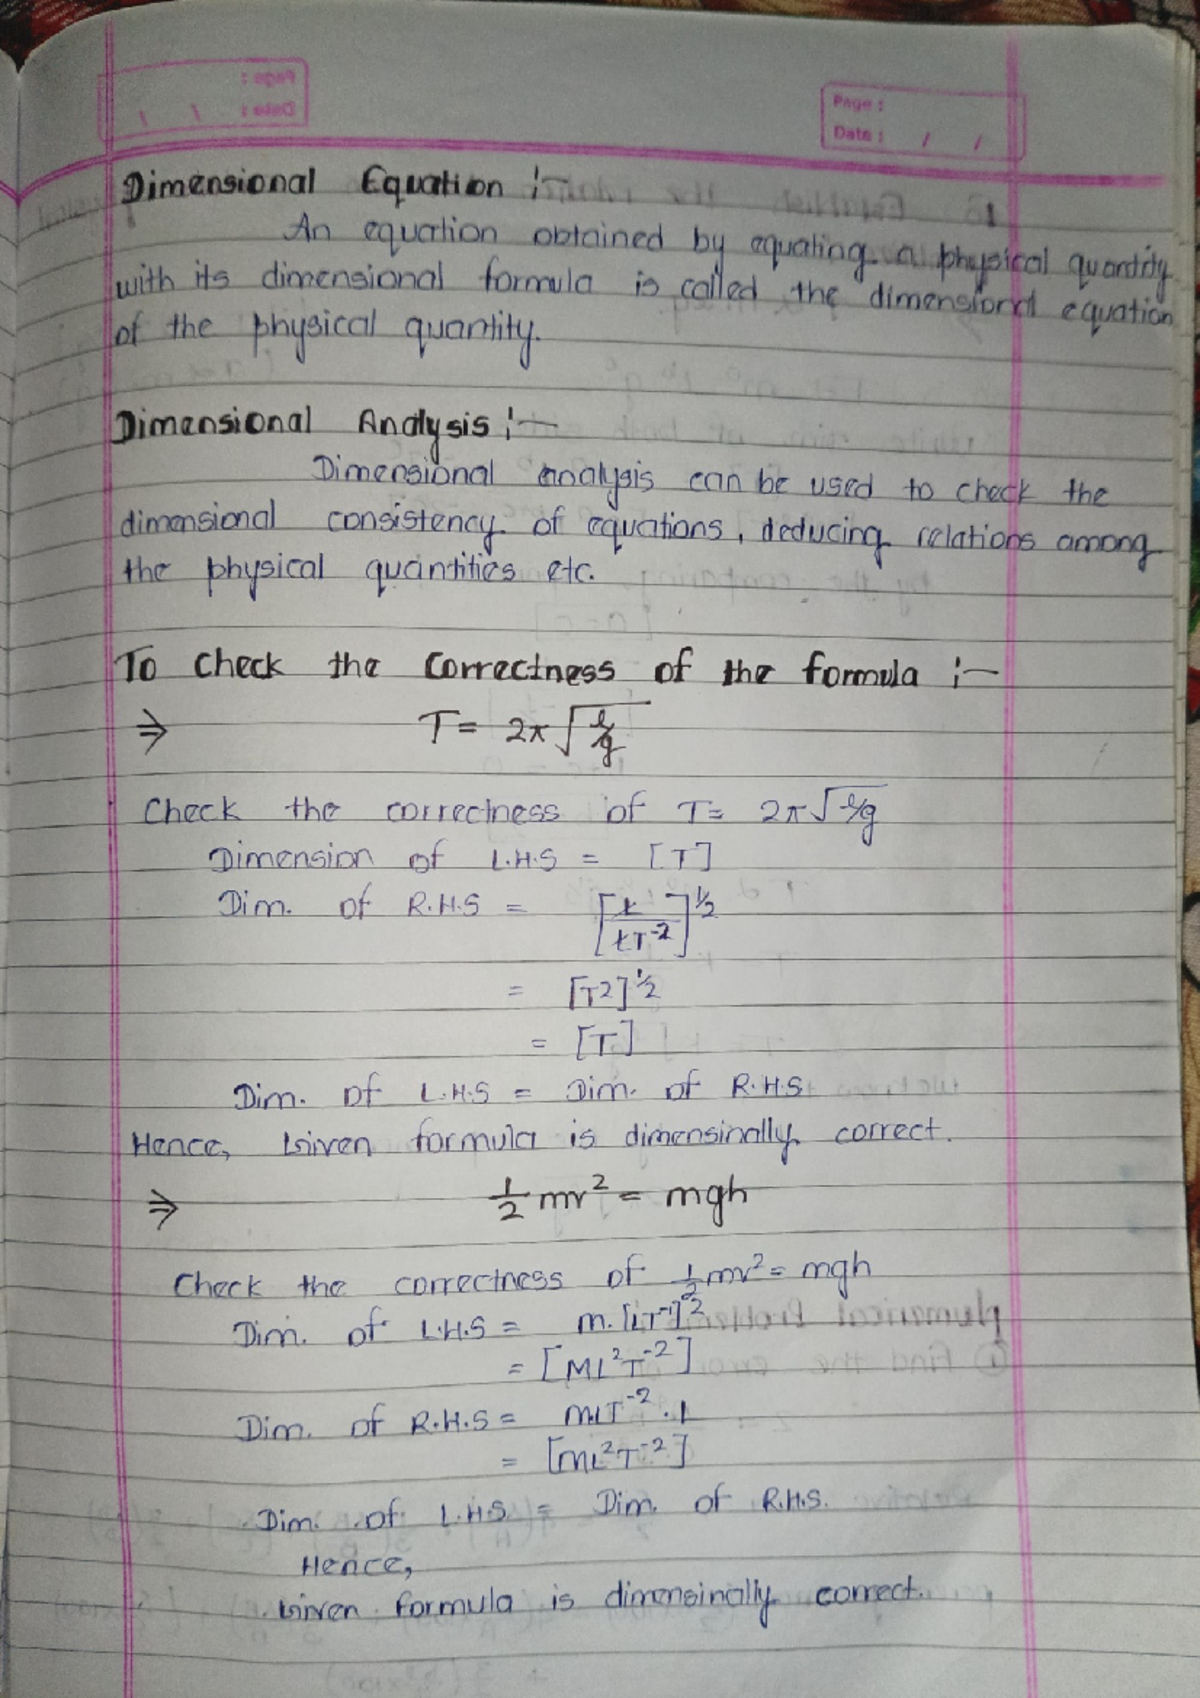 Page :
Date : / /
Dimensional Equation :-
An equation obtained by equating a physical quantity
with its dimensional formula is called the dimensional equation
of the physical quantity.
Dimensional Analysis :-
Dimensional analysis can be used to check the
dimensional consistency of equations, deducing relations among
the physical quantities etc.
To Check the Correctness of the formula :-
⇒ T = 2π√l/g
Check the correctness of T = 2π√l/g
Dimension of L.H.S = [T]
Dim. of R.H.S = [L/LT⁻²]^½
= [T2]^½
= [T]
Dim. of L.H.S = Dim. of R.H.S
Hence, Given formula is dimensinally correct.
⇒ ½ mv² = mgh
Check the correctness of ½mv² = mgh
Dim. of L.H.S = m.[LT⁻¹]²
= [ML²T⁻²]
Dim. of R.H.S = MLT⁻².L
= [ML²T⁻²]
Dim. of L.H.S = Dim. of R.H.S.
Hence,
Given formula is dimensinally correct.